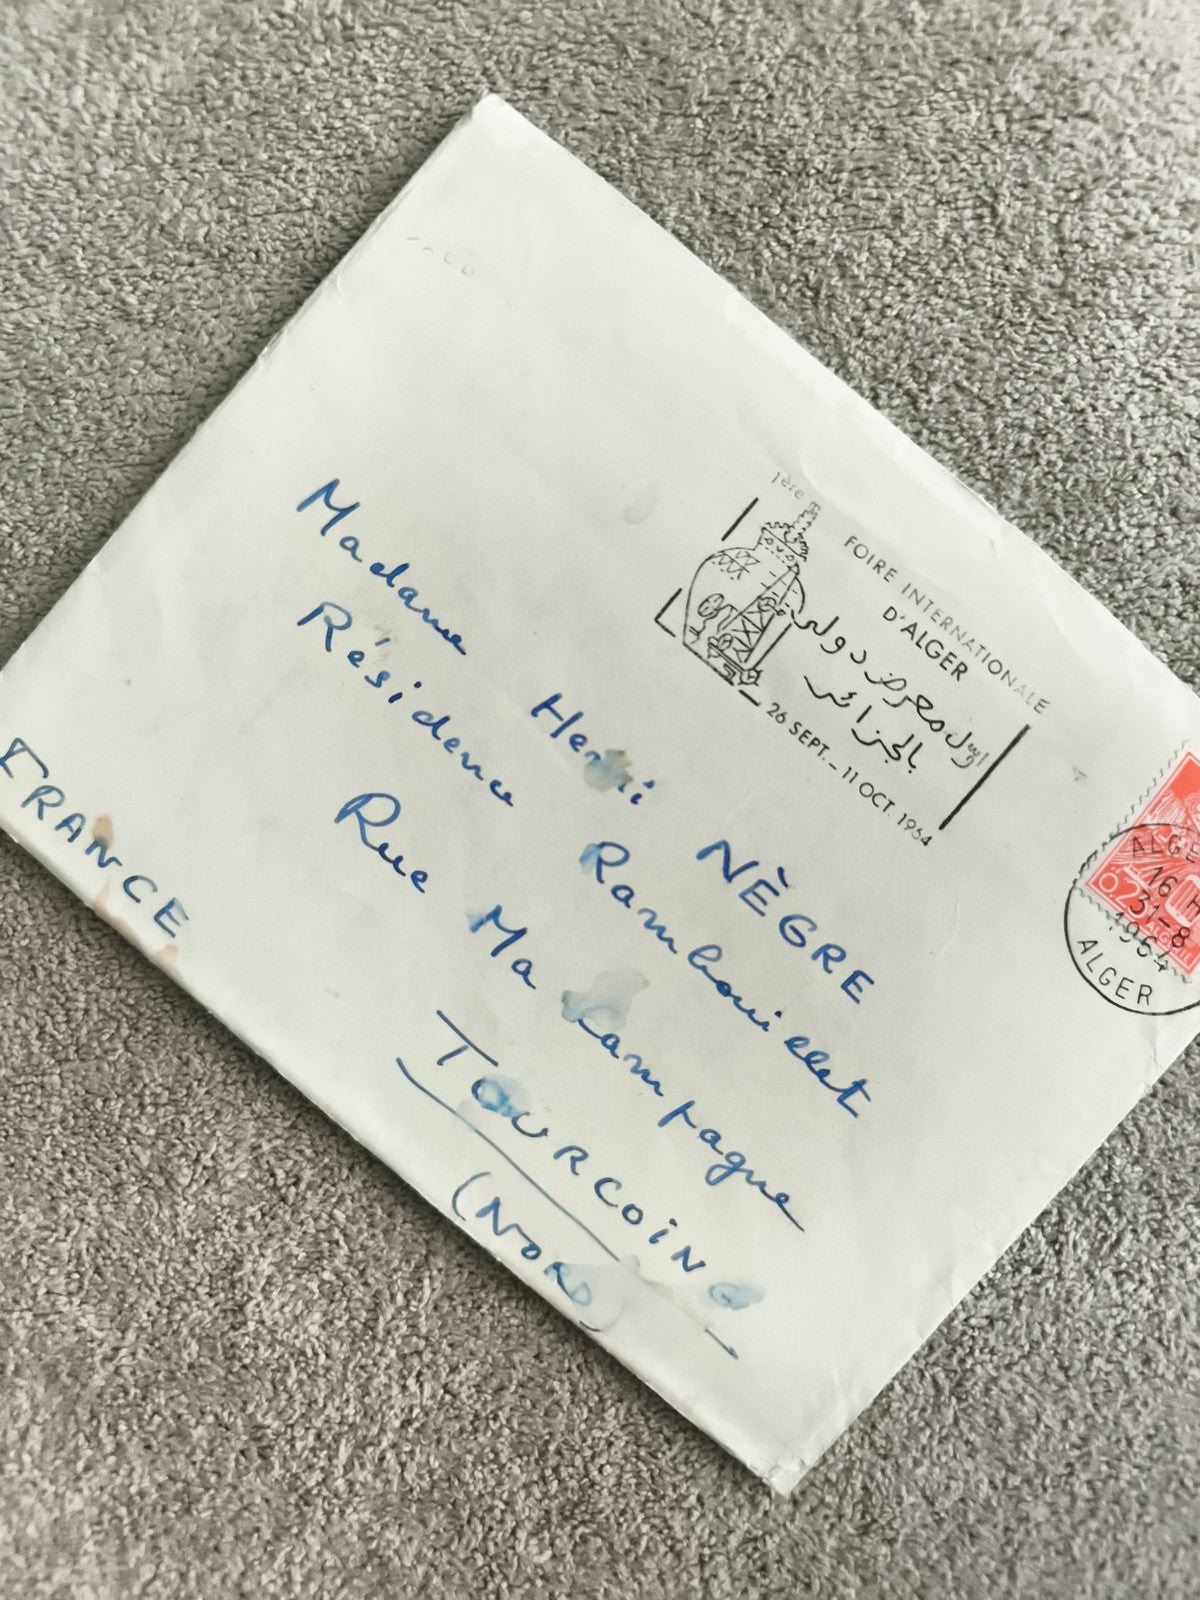 1ère FOIRE INTERNATIONALE
D'ALGER
اول معرض دولي
بالجزائر
26 SEPT. _ 11 OCT. 1964
0,25
ALGER
16 H
31-8
1964
ALGER
Madame Henri NÈGRE
Résidence Rambouillet
Rue Ma Campagne
TOURCOING
(NORD)
FRANCE